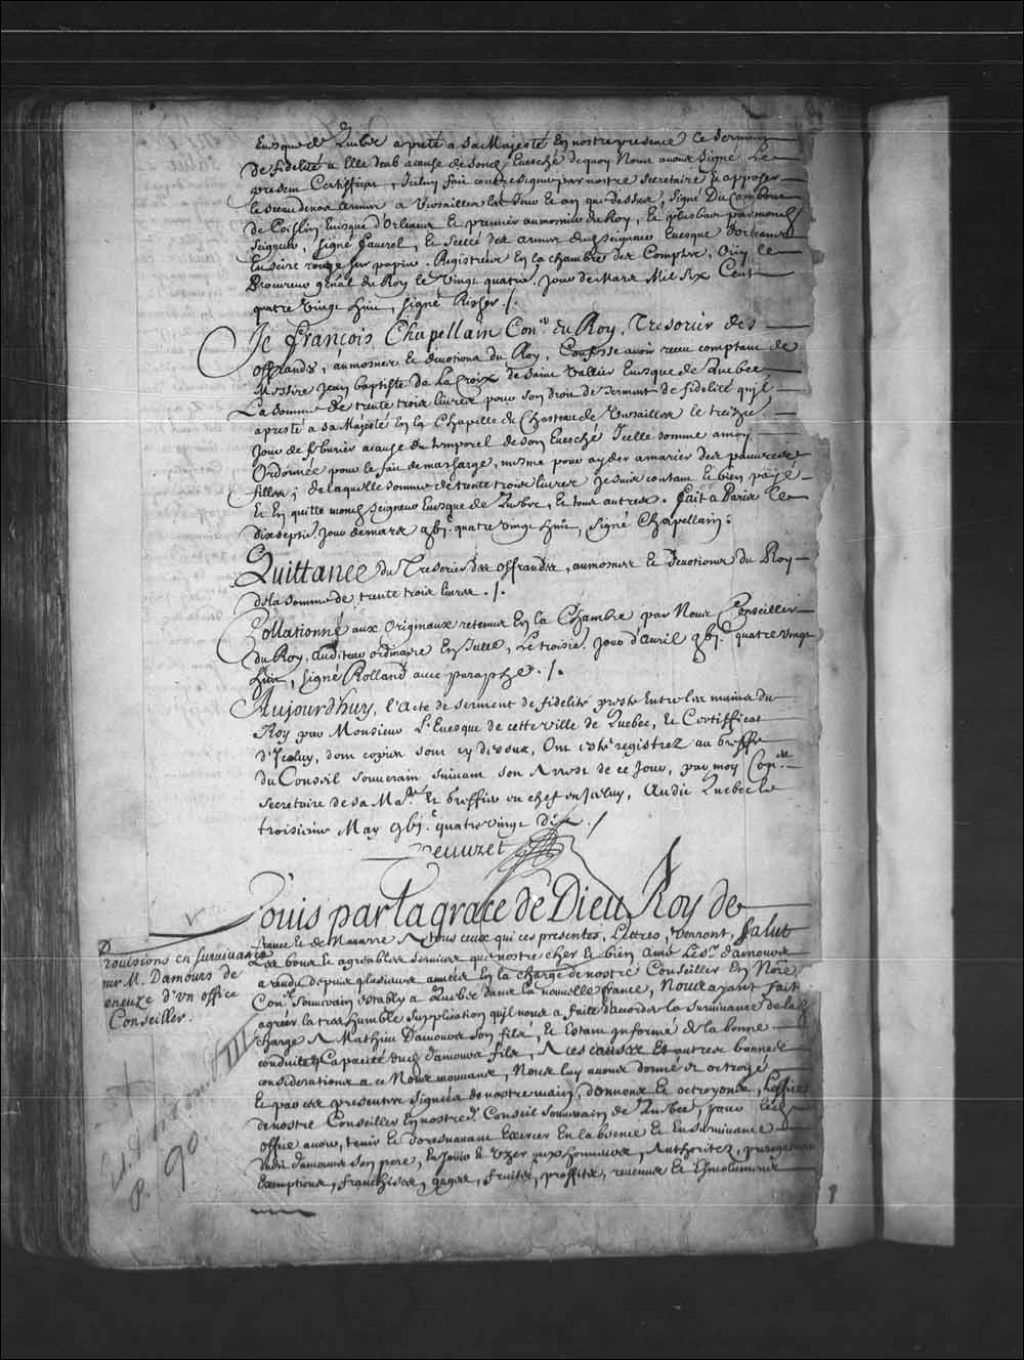 Euesque de Quebec a presté a sa Majesté En nostre presence Le serment
de fidelité a Elle deub a cause de sond. Euesché de quoy Nous auons signé Le
present Certifficat, Iceluy fait contresigner par nostre secretaire & apposer
le sceau de nos armes a Versailles les Jour et an que dessus, signé Du Cambout
de Coislin Euesque d'Orleans Et premier aumosnier du Roy, Et plus bas par mond.
seigneur, signé fauerol, Et scellé des armes dud. seigneur Euesque d'orleans
En cire rouge sur papier. Registrées En la chambre des Comptes, Ouy le
Procureur g'nal du Roy le vingt quatre. Jour de Mars Mil six Cent
quatre vingt huit, signé Richer ./.
Je françois Chapellain Con.er du Roy, Tresorier des
offrandes, aumosnes et deuotions du Roy, Confesse auoir receu comptant de
Messire Jean baptiste de La Croix de Saint Vallier Euesque de Quebec
La somme de trente trois liures pour son droit de serment de fidelité qu'il
a presté a sa Majesté En la Chapelle du Chasteau de Versailles le treizie.
Jour de feburier a cause du temporel de son Euesché Icelle somme a moy
Ordonnée pour le fait de ma charge, mesme pour ayder a marier des pauures
filles; de laquelle somme de trente trois liures Je suis contant Et bien payé
Et En quitte mond. seigneur Euesque de Quebec, Et tous autres. fait a Paris Le
dixseptie. Jour de mars gbj.c quatre vingt huit, signé Chapellain:
Quittance du Tresorier des offrandes, aumosnes Et Deuotions du Roy
de la somme de trente trois liures ./.
Collationné aux Originaux retenus En la Chambre par Nous Conseiller
du Roy, auditeur ordinaire En Icelle, Le troisie. Jour d'auril gbj.c quatre vingt
huit, signé Rolland auec paraphe ./.
Aujourd'huy, l'Acte de serment de fidelité presté Entre les mains du
Roy par Monsieur L'Euesque de cette ville de Quebec, Et Certifficat
d'Iceluy, dont copies sont cy dessus, Ont esté registrez au Greffe
du Conseil souuerain suiuant son Arrest de ce Jour, par moy Con.er
secretaire de sa Ma.té Et Greffier en chef en Iceluy, Audit Quebec le
troisieme May gbj.c quatre vingt dix ./
Peuuzet
Louis par la grace de Dieu Roy de
france Et de Nauarre A tous ceux qui ces presentes, Lettres, verront, Salut
Les bons Et agreables seruices que nostre cher Et bien Amé Le S.r damours
a rendu depuis plusieurs années En la charge de nostre Conseiller En N're
Con.l Souuerain estably a Quebec dans la nouuelle france, Nous ayant fait
agréer la tres humble supplication qu'il nous a faite d'accorder la suruiuance de lad.
charge A Mathieu Damours son fils, Et Estant Informé de la bonne
conduite Et Capacité dud. damours fils, A ces causes Et autres bonnes
considerations a ce Nous mouuans, Nous luy auons donné & octroyé
Et par ces presentes signées de nostre main, donnons Et octroyons, L'office
de nostre Conseiller En nostre d. Conseil Souuerain de Quebec, pour led.
office auoir, tenir Et doresnauant Exercer En l'absence Et En suruiuance
dudit damours son pere, En Jouir Et Vzer aux honneurs, Authoritez, prerogatiues
Exemptions, franchises, gages, fruits, proffits, reuenus Et Emolumens
Prouisions en suruiuance
sur M. Damours de
eneuze d'vn office
Conseiller.
III
P. 90.